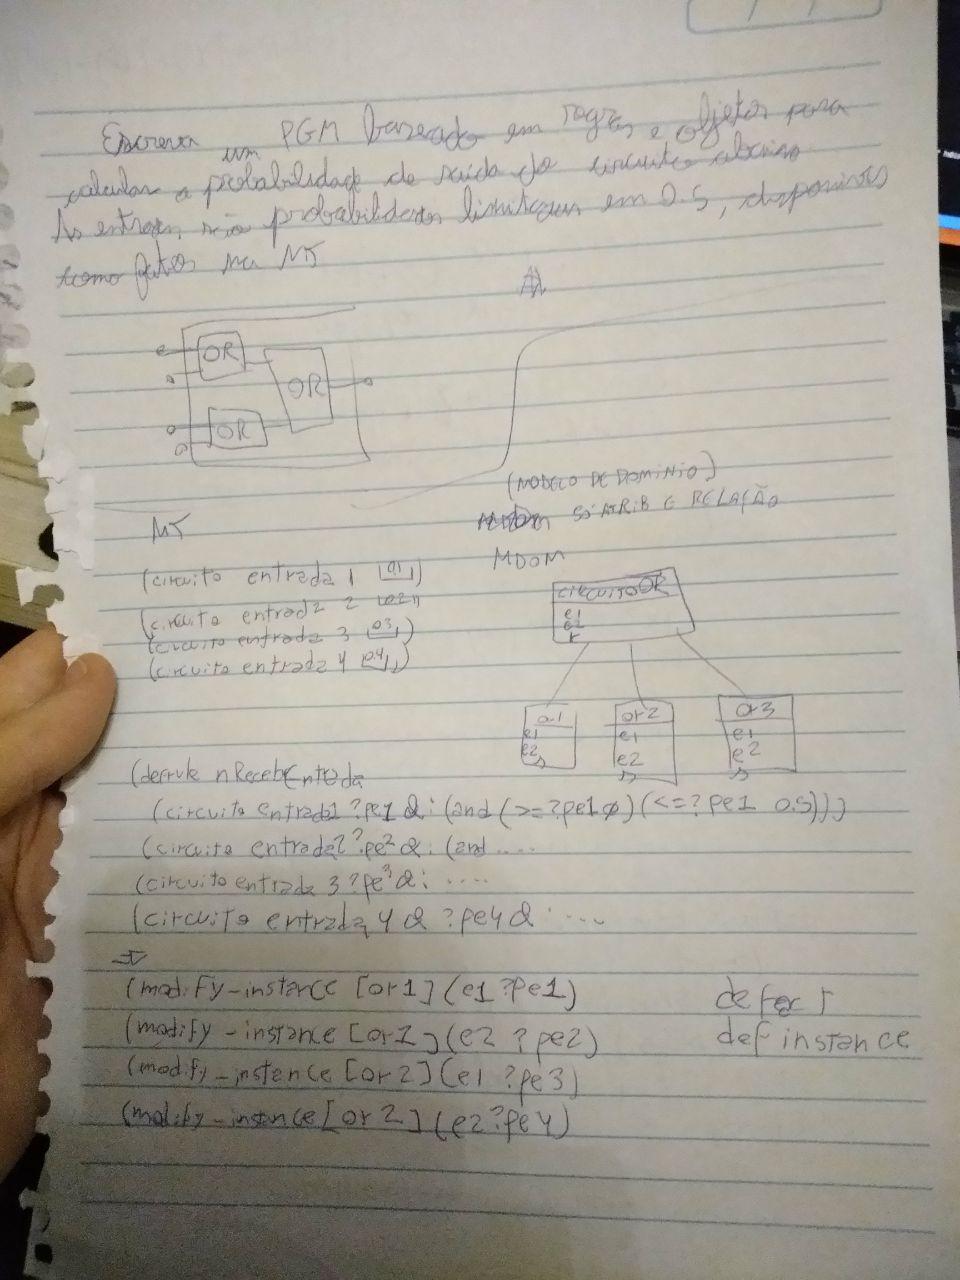 Escreva um PGM baseado em regras e objetos para
calcular a probabilidade de saída do circuito abaixo
As entradas são probabilidades limitam em 0.5, disponíveis
como fatos na MT
OR
OR
OR
(MODELO DE DOMINIO)
SÓ ATRIB E RELAÇÃO
MT
MDOM
(circuito entrada 1 0.1)
(circuito entrada 2 0.2)
(circuito entrada 3 0.3)
(circuito entrada 4 0.4)
circuitoOR
e1
e2
r
or1
e1
e2
s
or2
e1
e2
s
or3
e1
e2
s
(defrule nRecebeEntrada
(circuito entrada1 ?pe1 &: (and (>= ?pe1 0) (<= ?pe1 0.5)))
(circuito entrada2 ?pe2 &: (and ....
(circuito entrada 3 ?pe3 &: ....
(circuito entrada 4 & ?pe4 & ....
=>
(modify-instance [or1] (e1 ?pe1)
(modify-instance [or1] (e2 ?pe2)
(modify-instance [or2] (e1 ?pe3)
(modify-instance [or2] (e2 ?pe4)
defact
definstance